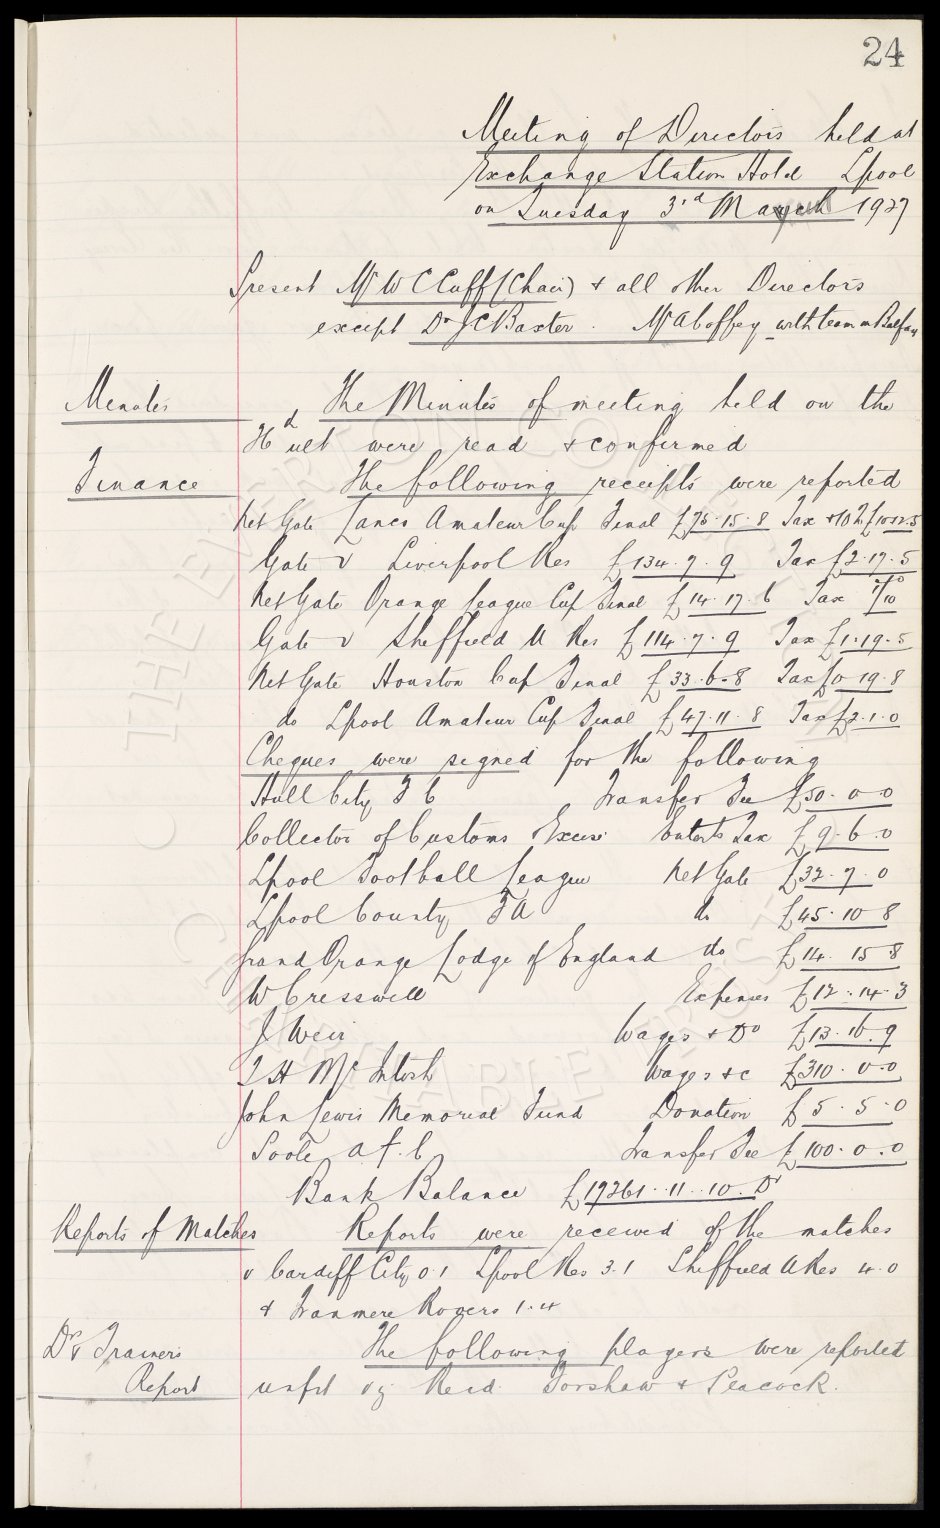 24
Meeting of Directors held at
Exchange Station Hotel Lpool
on Tuesday 3rd May 1927
Present Mr W C Cuff (Chair) & all other Directors
except Dr J C Baxter. Mr A Coffey with team in Belfast
Minutes
The Minutes of meeting held on the
ult were read & confirmed
Finance
The following receipts were reported
Net Gate Lancs Amateur Cup Final £75.15.8 Tax
Gate v Liverpool Res £134.7.9 Tax £2.17.5
Net Gate Orange League Cup Final £14.17.6 Tax
Gate v Sheffield U Res £114.7.9 Tax £1.19.5
Net Gate Houston Cup Final £33.6.8 Tax £0.19.8
do Lpool Amateur Cup Final £47.11.8 Tax £2.1.0
Cheques were signed for the following
Hull City F C Transfer Fee £50.0.0
Collector of Customs Excise Entert Tax £9.6.0
Lpool Football League Net Gate £32.7.0
Lpool County F A do £45.10.8
Grand Orange Lodge of England do £14.15.8
W Cresswell Expenses £12.14.3
J Weir Wages & Do £13.16.9
T H McIntosh Wages &c £310.0.0
John Lewis Memorial Fund Donation £5.5.0
Poole A.F.C Transfer Fee £100.0.0
Bank Balance £19261.11.10 Dr
Reports of Matches
Reports were received of the matches
v Cardiff City 0.1 Lpool Res 3.1 Sheffield U Res 4.0
& Tranmere Rogers 1.4
Dr & Trainers
Report
The following players were reported
unfit vz Reid Forshaw & Peacock.
THE EVERTON COLLECTION
CHARITABLE TRUST